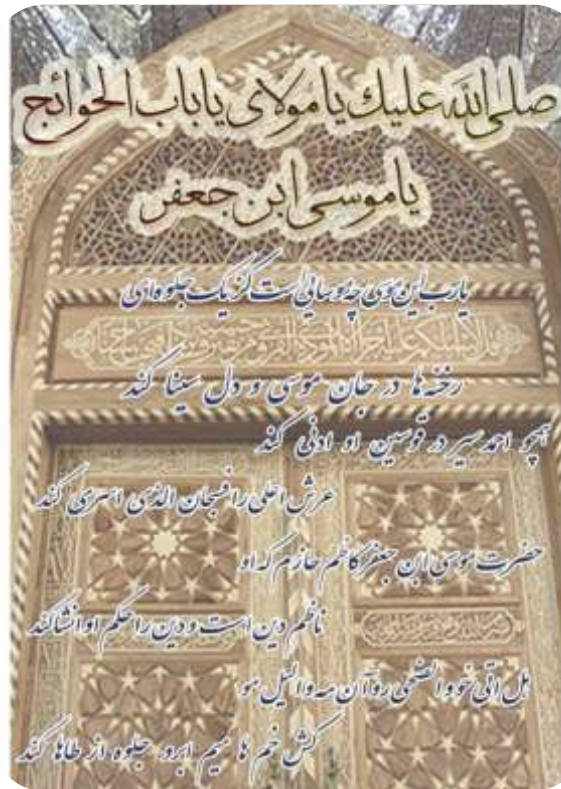 صلی الله علیك یا مولای یا باب الحوائج
یا موسی ابن جعفر
یارب این موسی چه موسائی است کز یک جلوه‌ای
قل لا اسئلکم علیه اجرا الا المودة فی القربی و من یقترف حسنة
رخنه‌ها در جان موسی و دل سینا کند
همچو احمد سیر در قوسین او ادنی کند
عرش اعلی را فسبحان الذی اسری کند
حضرت موسی ابن جعفر کاظم حازم که او
ناظم دین است و دین را حکم او انشا کند
هل اتی خو و الضحی رو آن مه واللیل مو
کش خم ها میم ابرو جلوه از طاها کند